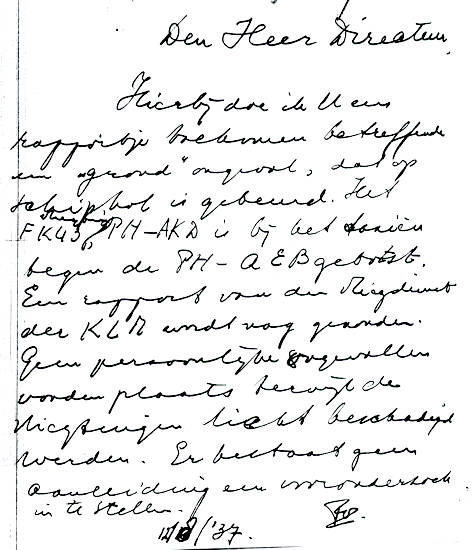 Den Heer Directeur,
Hierbij doe ik U een
rapportje toekomen betreffende
een "grond" ongeval, dat op
Schiphol is gebeurd. Het
FK43 PH-AKD is bij het taxiën
tegen de PH-AEB gebotst.
Een rapport van den vliegdienst
der KLM wordt nog gezonden.
Geen persoonlijke ongevallen
vonden plaats terwijl de
vliegtuigen licht beschadigd
werden. Er bestaat geen
aanleiding een vooronderzoek
in te stellen.
/'37.